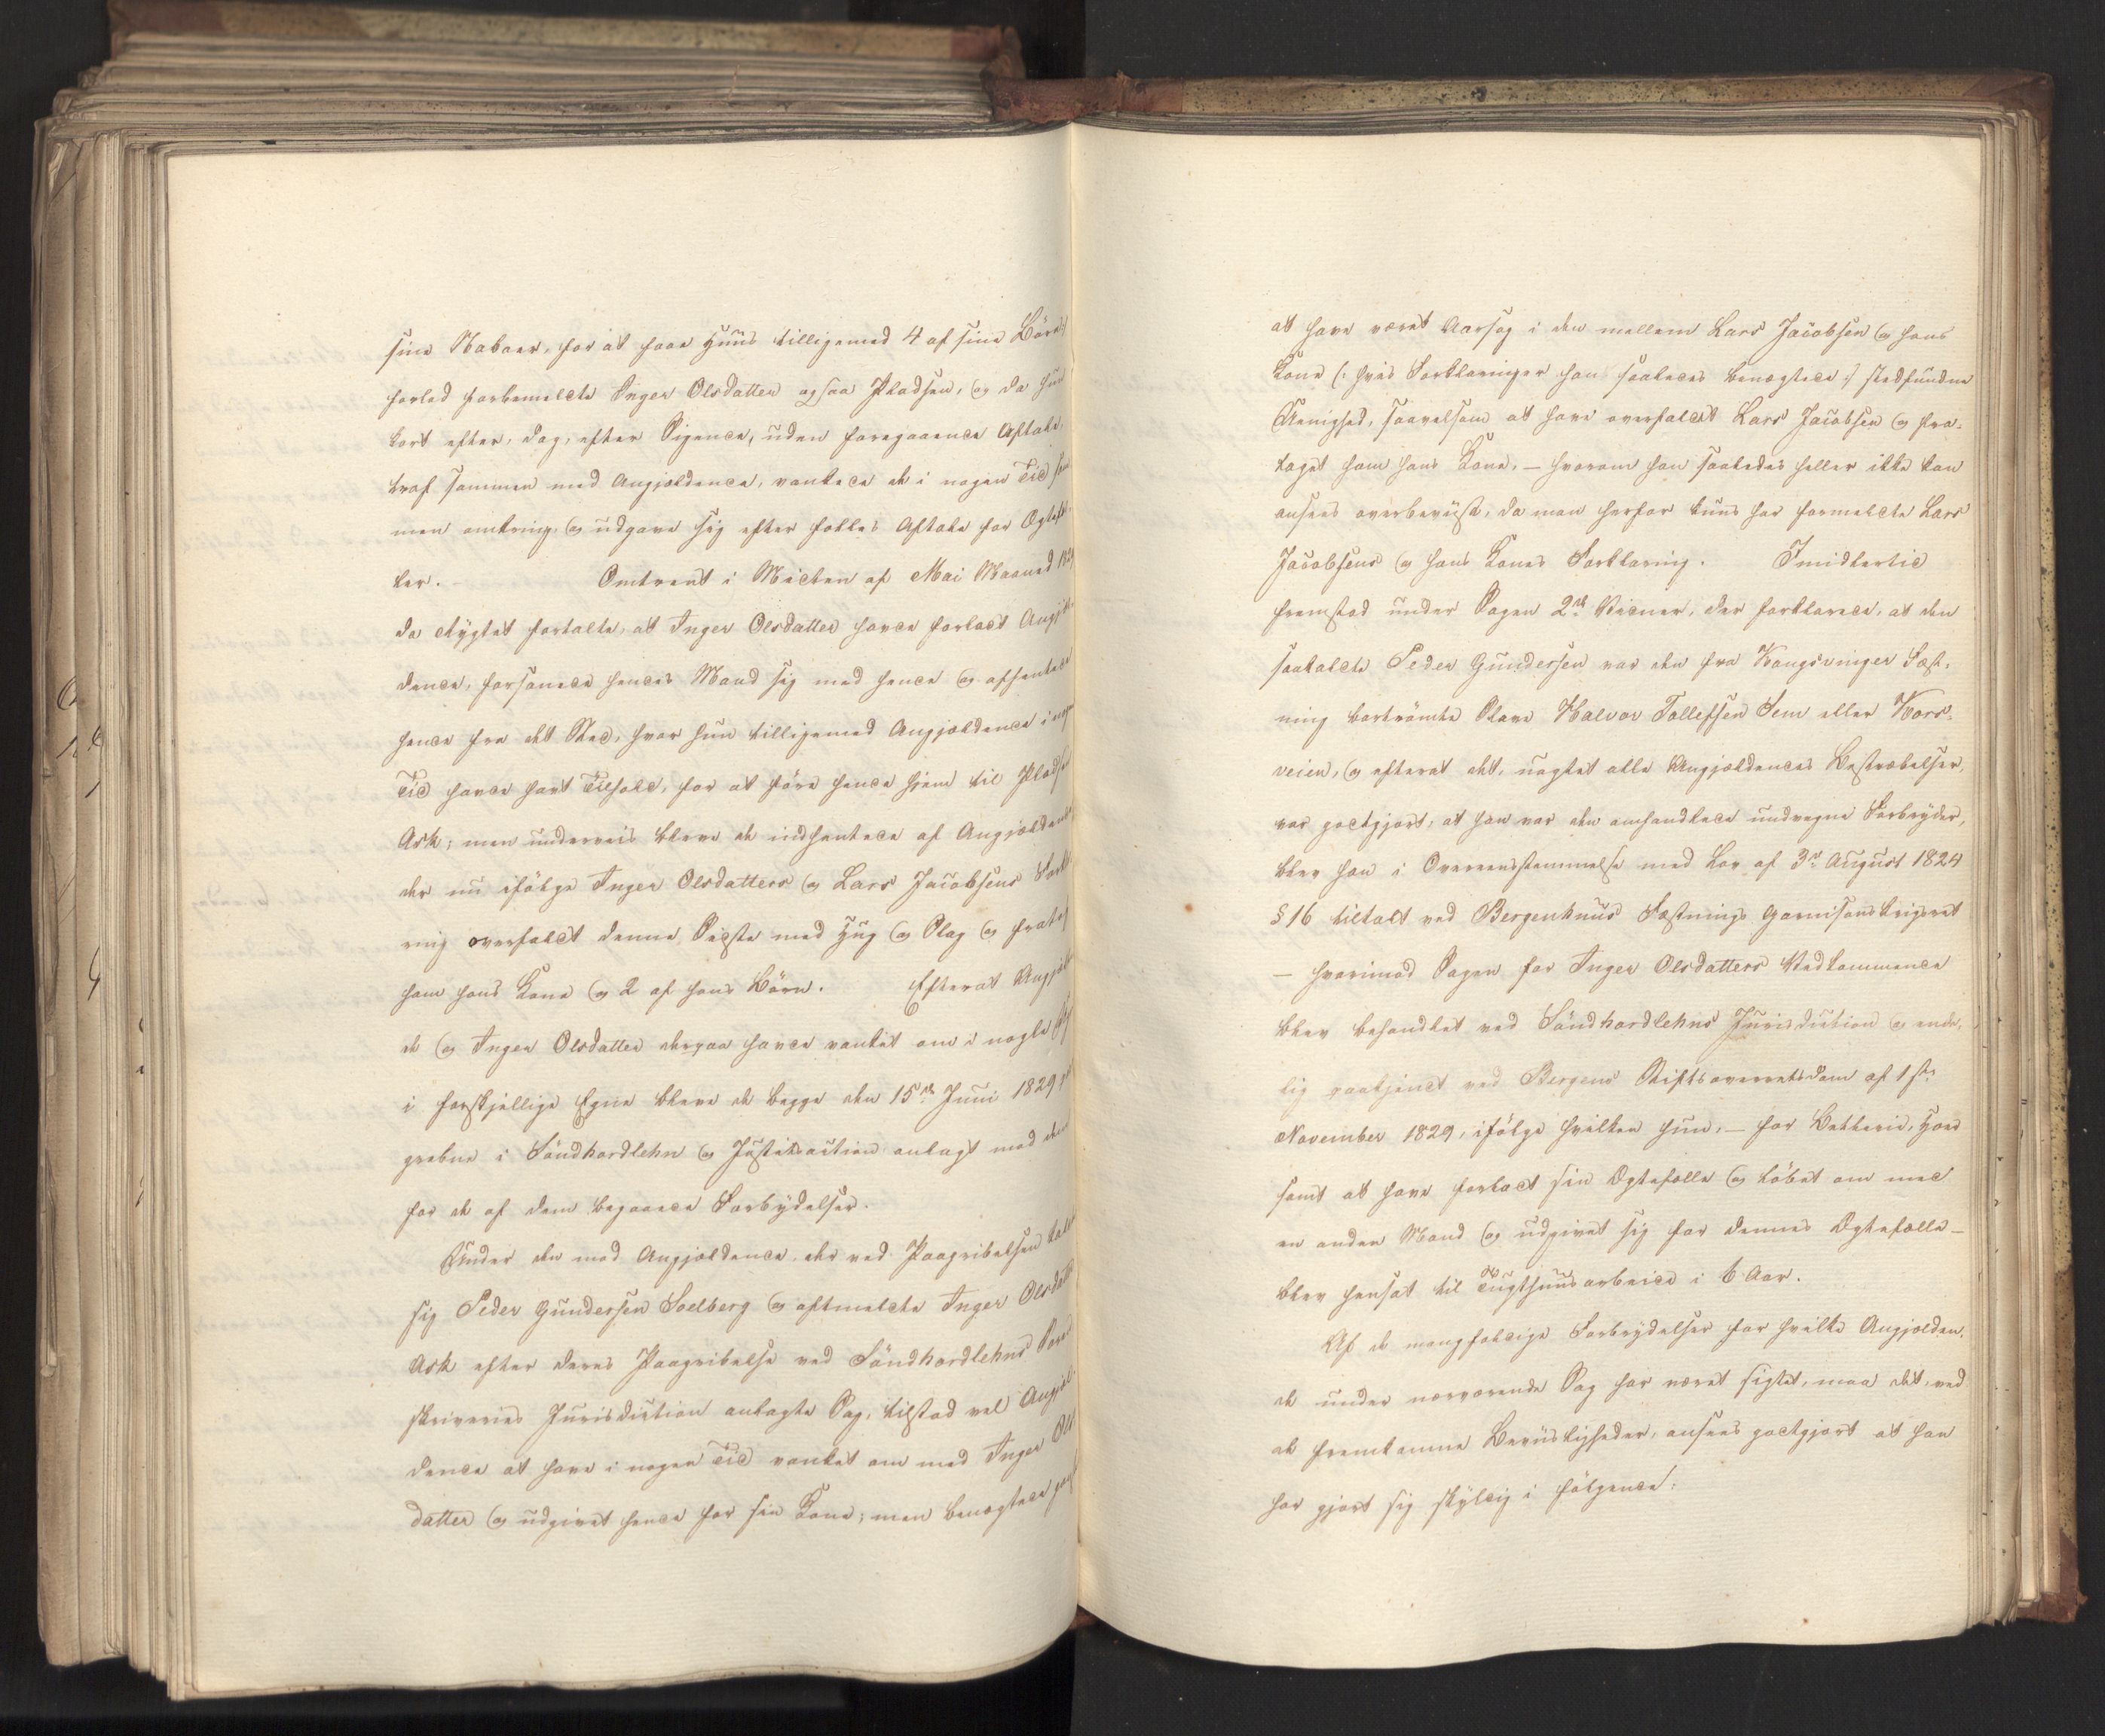 sine Naboer, for at faae Huus tilligemed 4 af sine Börn,
forlod forbemeldte Inger Olsdatter ogsaa Pladsen, og da hun
kort efter, dog, efter Sigende, uden foregaaende Aftale,
traf sammen med Angjeldende, vankede de i nogen Tid sam
men omkring og udgave sig efter fælles Aftale for Ægtefol-
ker. Omtrent i Midten af Mai Maaned 1829
da Rygtet fortalte, at Inger Olsdatter havde forladt Angjel
dende, forsonede hendes Mand sig med hende og afhentede
hende fra det Sted, hvor hun tilligemed Angjeldende i nogen
Tid havde havt Tilhold, for at före hende hjem til Pladsen
Ask; men underveis bleve de indhentede af Angjeldende
der nu ifölge Inger Olsdatters og Lars Jacobsens Forkla
ring overfaldt denne Sidste med Hug og Slag og fratog
ham hans Kone og 2 af hans Börn. Efterat Angjelden
de og Inger Olsdatter derpaa havde vanket om i nogle
i forskjellige Egne bleve de begge den 15de Juni 1829 paa
grebne i Söndhordlehn og Justitsaction anlagt mod dem
for de af dem begaaede Forbrydelser.
Under den mod Angjeldende, der ved Paagribelsen kaldte
sig Peder Gundersen Soelberg og oftmeldte Inger Olsdatter
Ask efter deres Paagribelse ved Söndhordlehns Soren
skriveries Jurisdiction anlagte Sag, tilstod vel Angjel-
dende at have i nogen Tid vanket om med Inger Ols
datter og udgivet hende for sin Kone; men benegtede
at have været Aarsag i den mellem Lars Jacobsen og hans
Kone (: hvis Forklaringer han saaledes benegtede :) stedfundne
Uenighed, saavelsom at have overfaldet Lars Jacobsen og fra-
taget ham hans Kone, – hvorom han saaledes heller ikke kan
ansees overbeviist, da man herfor kuns har formeldte Lars
Jacobsens og hans Kones Forklaring. Imidlertid
fremstod under Sagen 2de Vidner, der forklarede, at den
saakaldte Peder Gundersen var den fra Kongsvinger Fæst-
ning bortrömte Slave Halvor Tollefsen Sem eller Kors-
veien, og efterat det, uagtet alle Angjeldendes Bestræbelser,
var godtgjort, at han var den omhandlede undvegne Forbryder,
blev han i Overeensstemmelse med Lov af 3die August 1824
§ 16 tiltalt ved Bergenhuus Fæstnings Garnisonskrigsret
– hvorimod Sagen for Inger Olsdatters Vedkommende
blev behandlet ved Söndhordlehns Jurisdiction og ende-
lig paakjendt ved Bergens Stiftsoverretsdom af 1ste
November 1829, ifölge hvilken hun, – for Betlerie, Hoer
samt at have forladt sin Ægtefælle og löbet om med
en anden Mand og udgivet sig for dennes Ægtefælle –
blev hensat til Tugthuusarbeide i 6 Aar.
Af de mangfoldige Forbrydelser for hvilke Angjelden-
de under nærværende Sag har været sigtet, maa det, ved
de fremkomne Beviisligheder, ansees godtgjort at han
har gjort sig skyldig i fölgende: